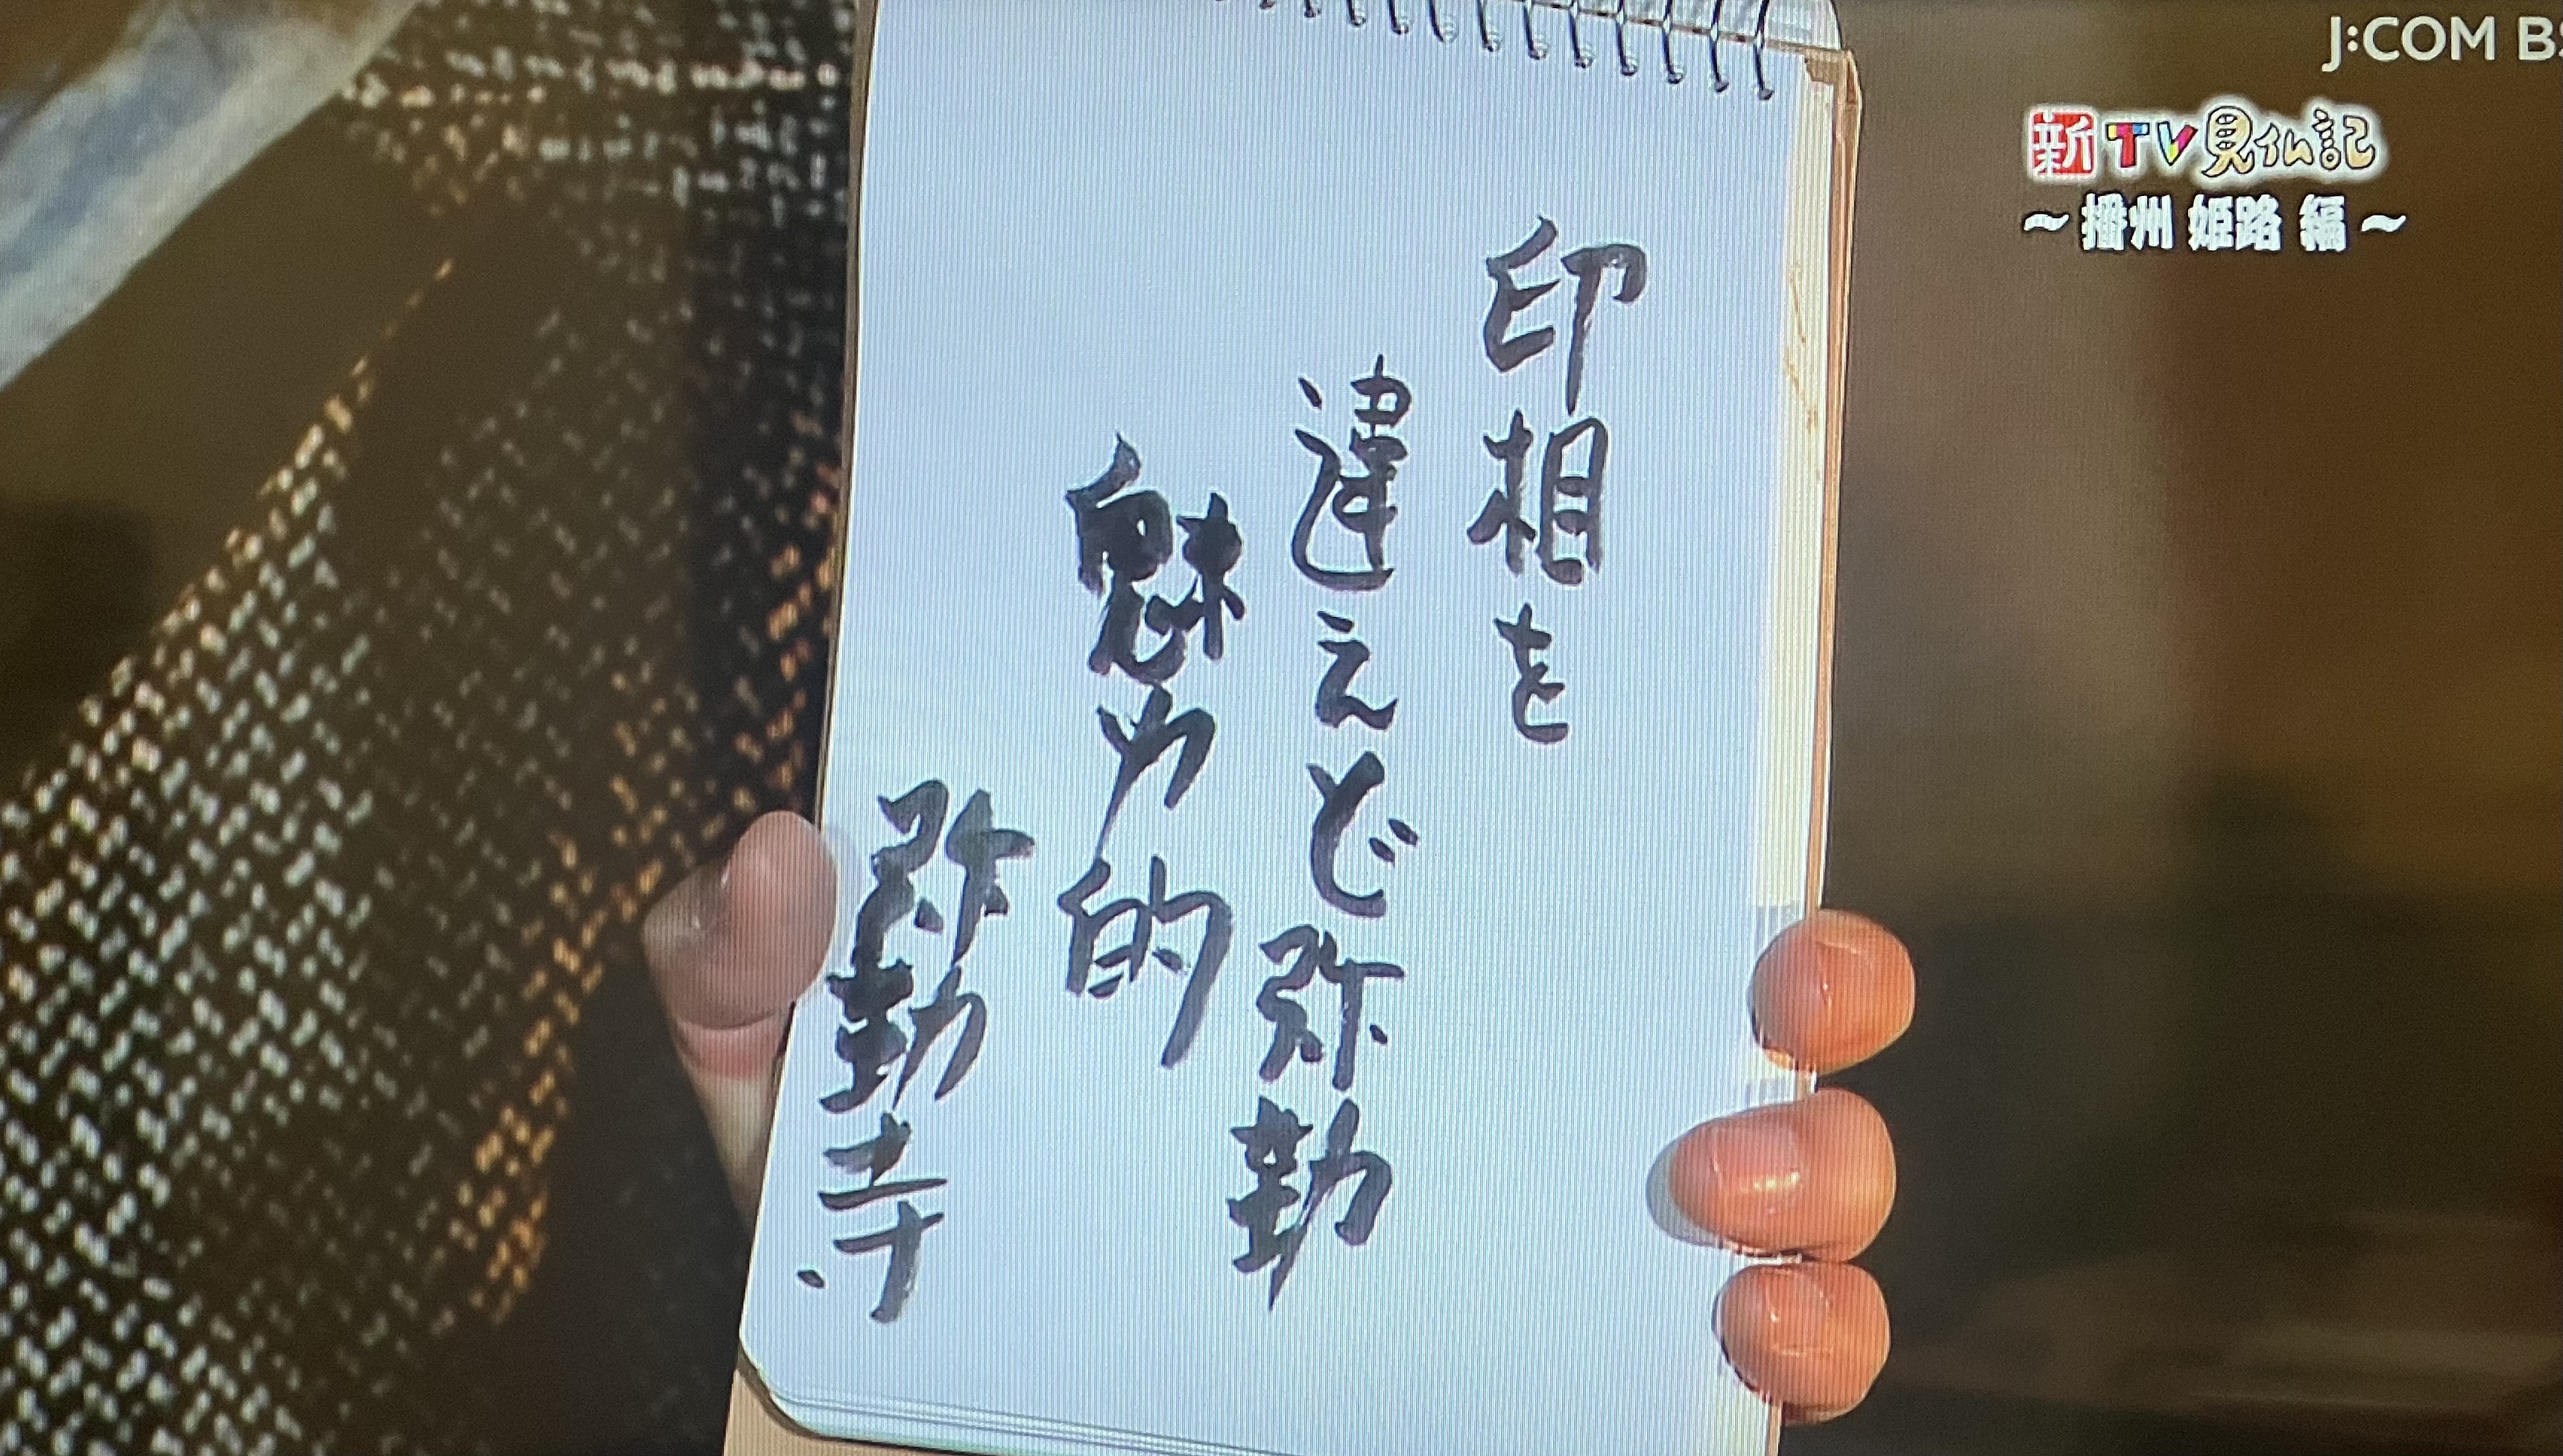 J:COM BS
新TV見仏記
～播州 姫路 編～
印相を
違えど弥勒
魅力的
弥勒寺